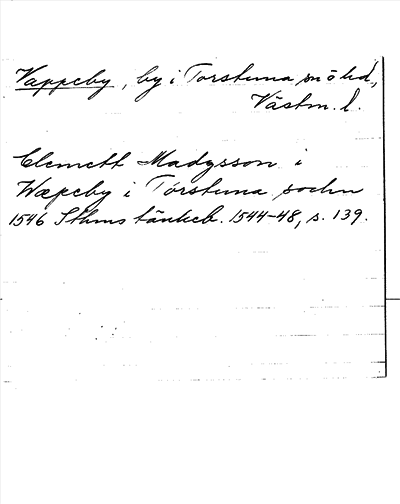 Vappeby, by i Torstuna sn ö hd,
Västm. l.
Clemett Madzsson i
Wæpeby i Torstuna sochn
1546 Sthms tänkeb. 1544-48, s. 139.